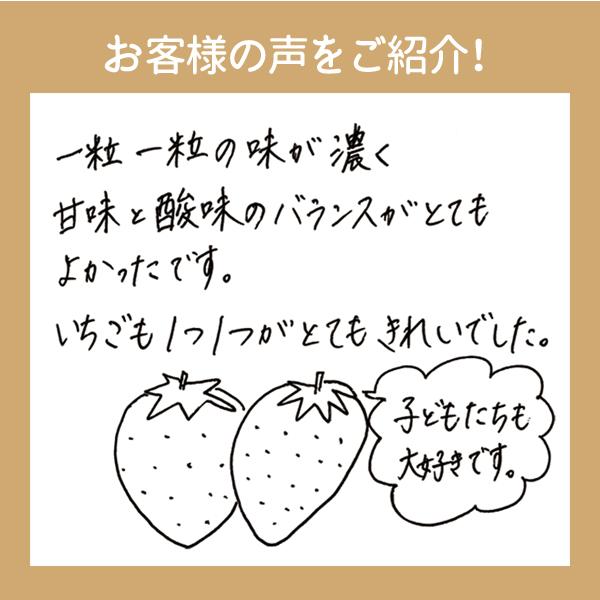 お客様の声をご紹介!
一粒一粒の味が濃く
甘味と酸味のバランスがとても
よかったです。
いちごも1つ1つがとてもきれいでした。
子どもたちも
大好きです。